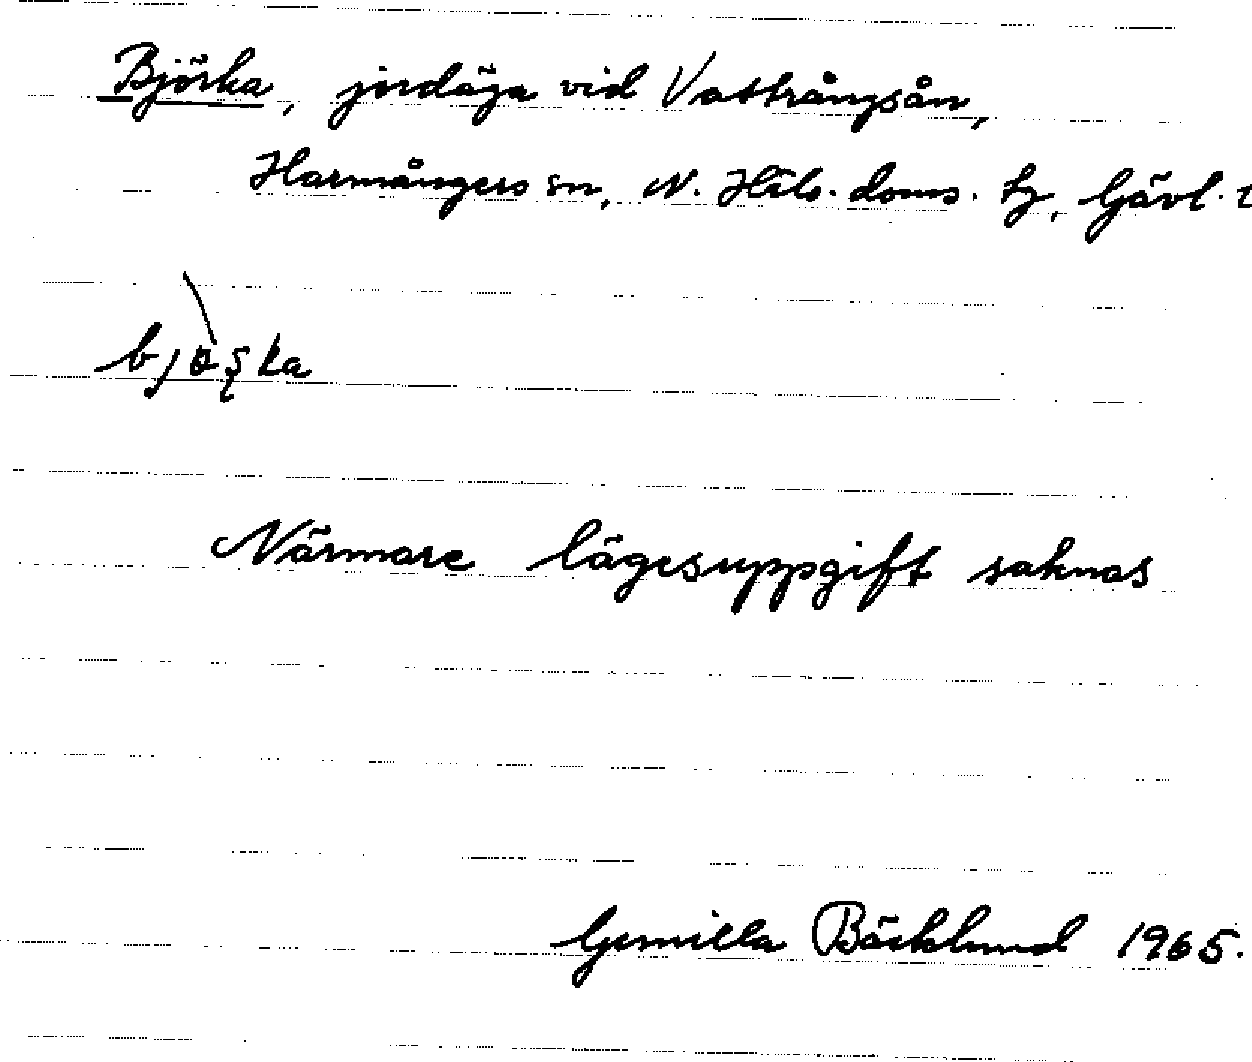 Björka, jordäga vid Vattrångsån,
Harmångers sn, N. Häls. doms. tg, Gävl. l
Närmare lägesuppgift saknas
Gunilla Bäcklund 1965.